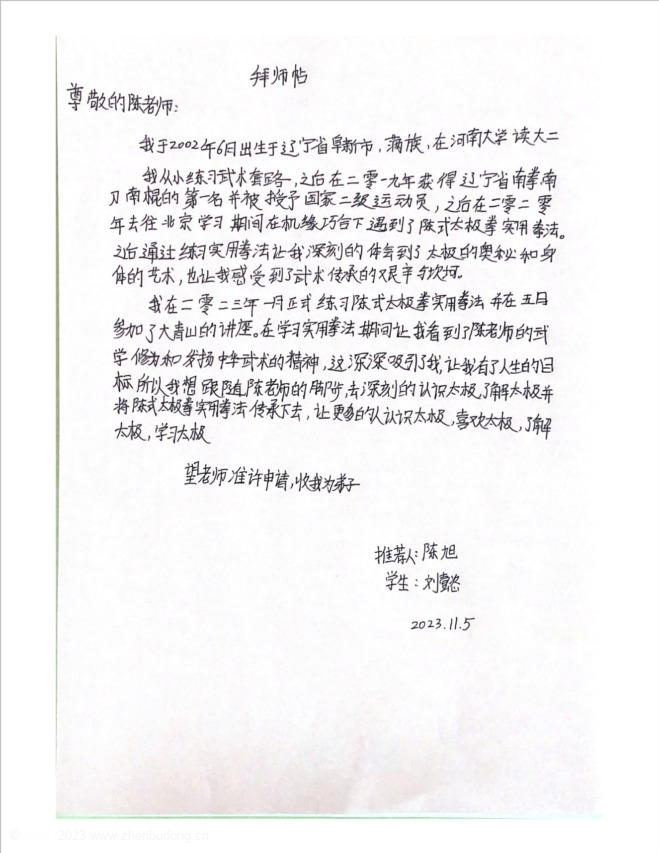 拜师帖
尊敬的陈老师：
我于2002年6月出生于辽宁省阜新市，满族，在河南大学读大二
我从小练习武术套路，之后在二零一九年获得辽宁省南拳南
刀南棍的第一名并被授予国家二级运动员，之后在二零二零
年去往北京学习期间在机缘巧合下遇到了陈式太极拳实用拳法。
之后通过练习实用拳法让我深刻的体会到了太极的奥秘和身
体的艺术，也让我感受到了武术传承的艰辛与坎坷。
我在二零二三年一月正式练习陈式太极拳实用拳法并在五月
参加了大青山的讲座。在学习实用拳法期间让我看到了陈老师的武
学修为和发扬中华武术的精神，这深深吸引了我，让我有了人生的目
标所以我想跟随陈老师的脚步，去深刻的认识太极，了解太极并
将陈式太极拳实用拳法传承下去，让更多的人认识太极，喜欢太极，了解
太极，学习太极
望老师准许申请，收我为弟子
推荐人：陈旭
学生：刘懿
2023.11.5
2023 www.zhenbudong.cn